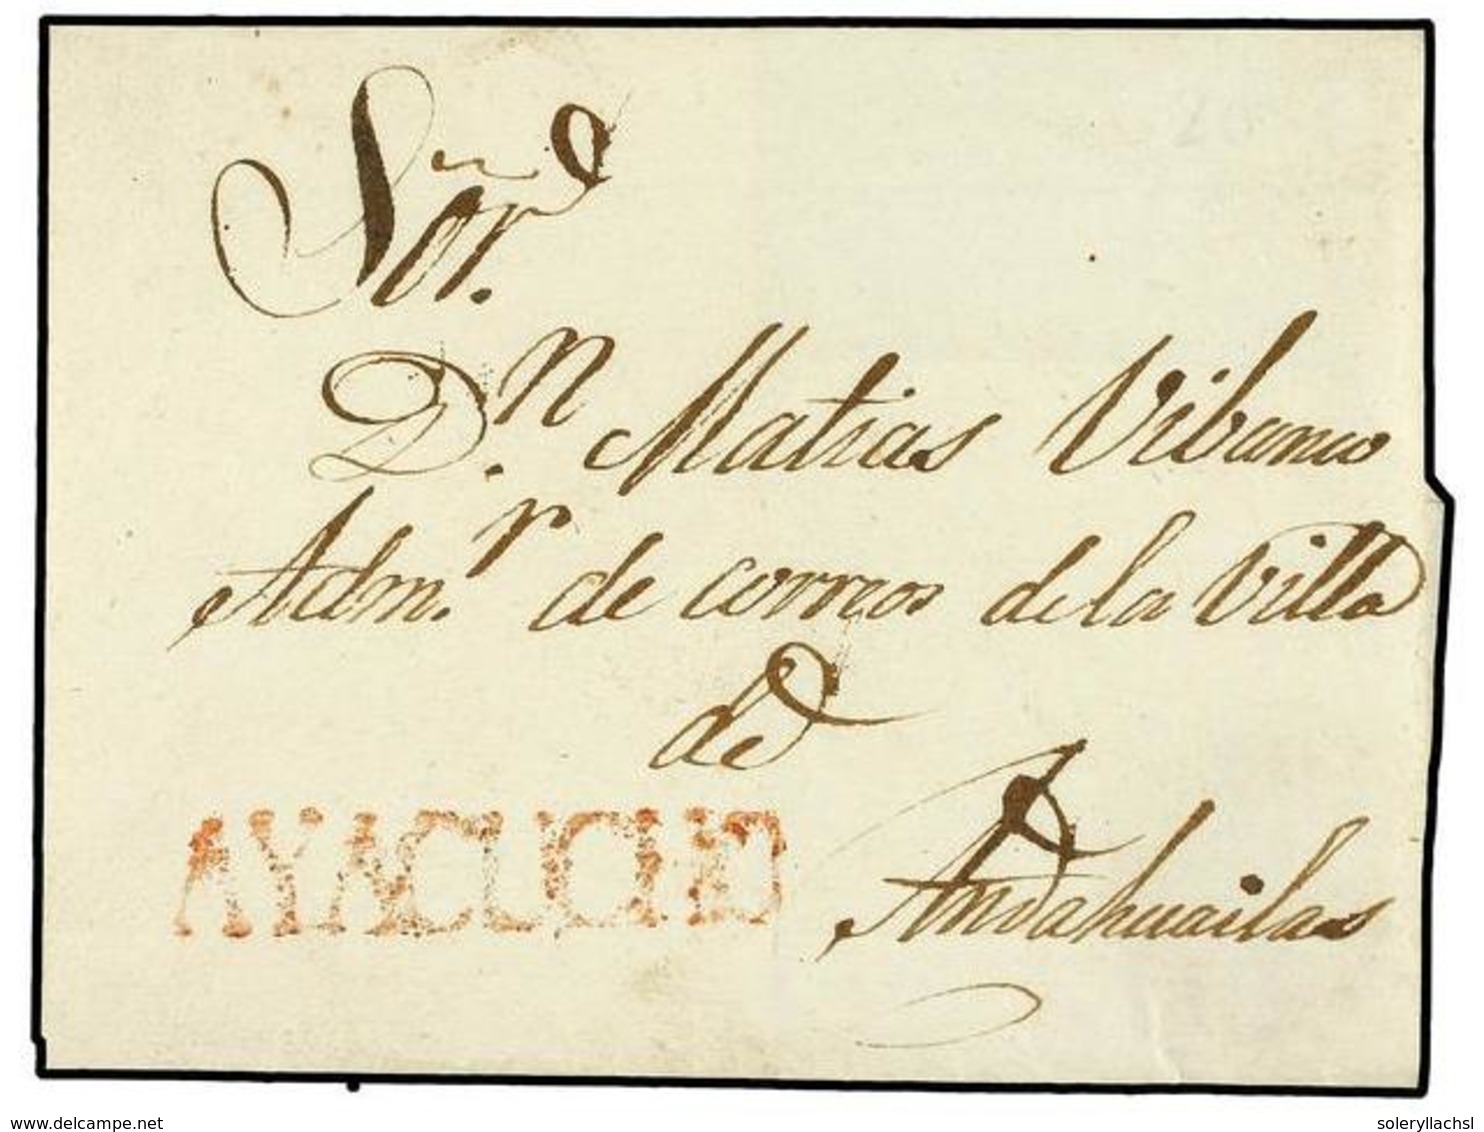 Sor.
D.n Matias Vibanco
Adm.r de correos de la Villa
de
AYACUCHO
Andahuailas
delcampe.net
soleryllachsl